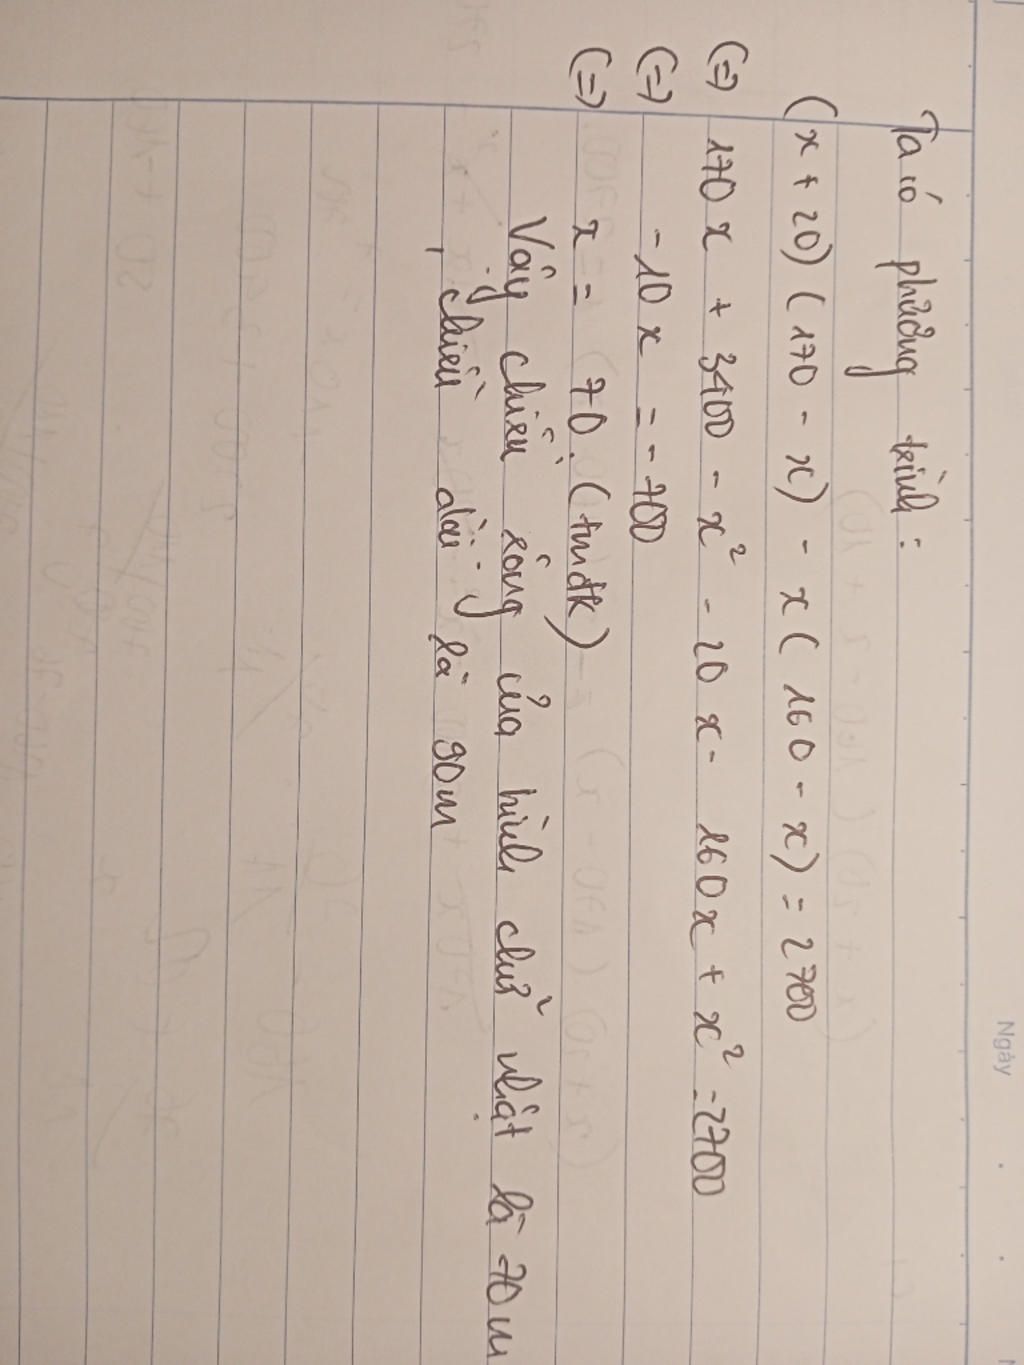 Ngày
Ta có phương trình :
(x + 20) (170 - x) - x ( 160 - x) = 2700
(=) 170 x + 3400 - x² - 20 x - 160x + x² = 2700
(=) - 10 x = - 700
(=) x = 70. (tmđk)
Vậy chiều rộng của hình chữ nhật là 70 m
, chiều dài là 90m